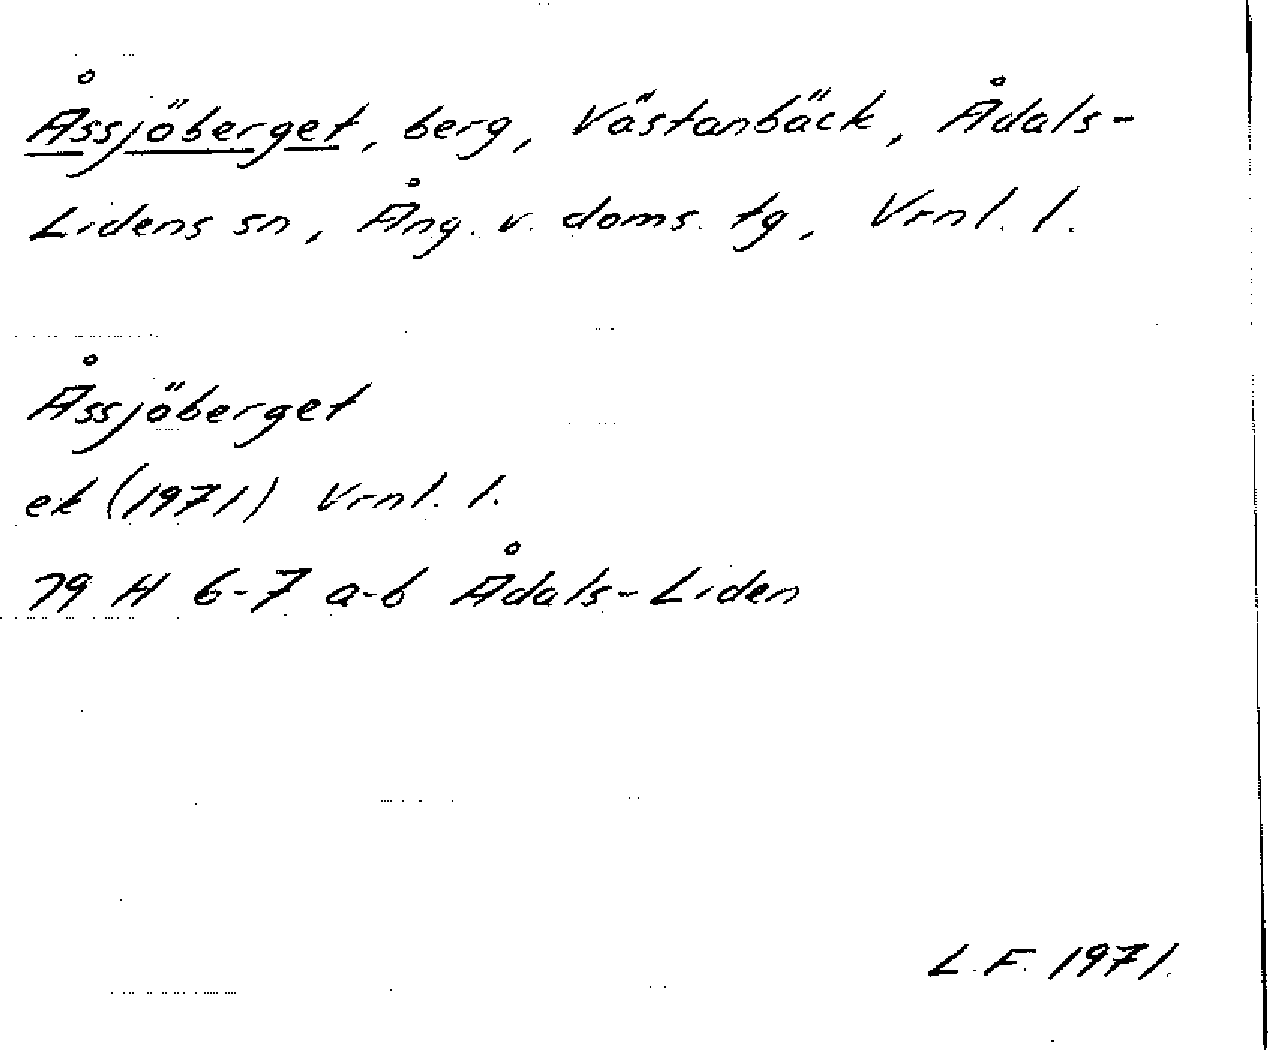 Åssjöberget, berg, Västanbäck, Ådals-
Lidens sn, Ång. v. doms. tg, Vrnl. l.
Åssjöberget
ek (1971) Vrnl. l.
19 H 6-7 a-b Ådals-Liden
L.F. 1971.